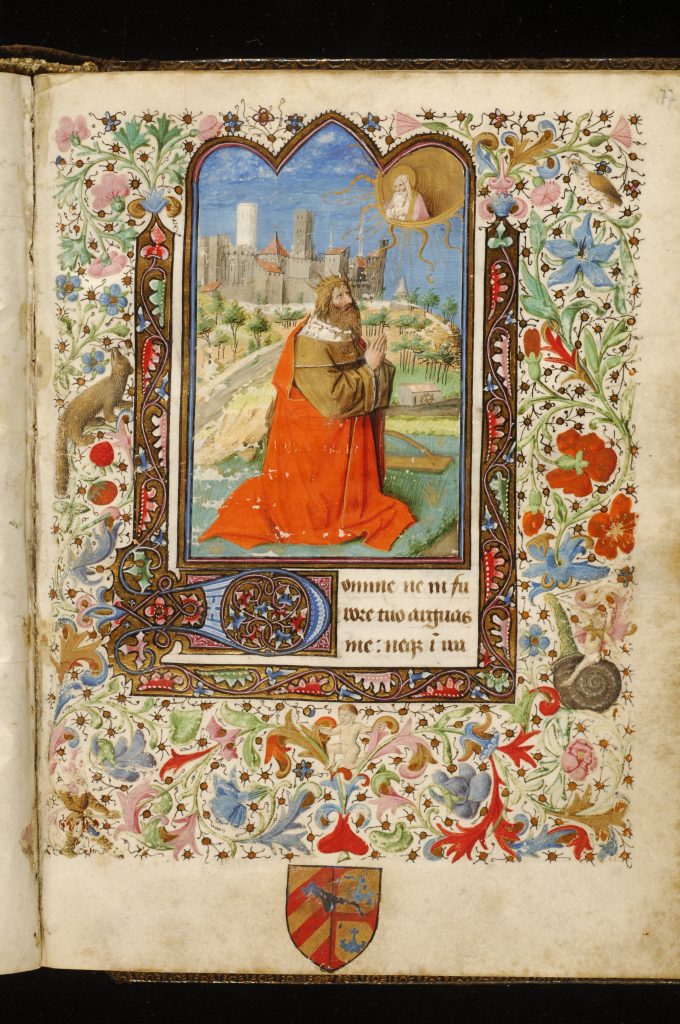 77
Domine ne in fu
rore tuo arguas
me: neqꝫ ī ira